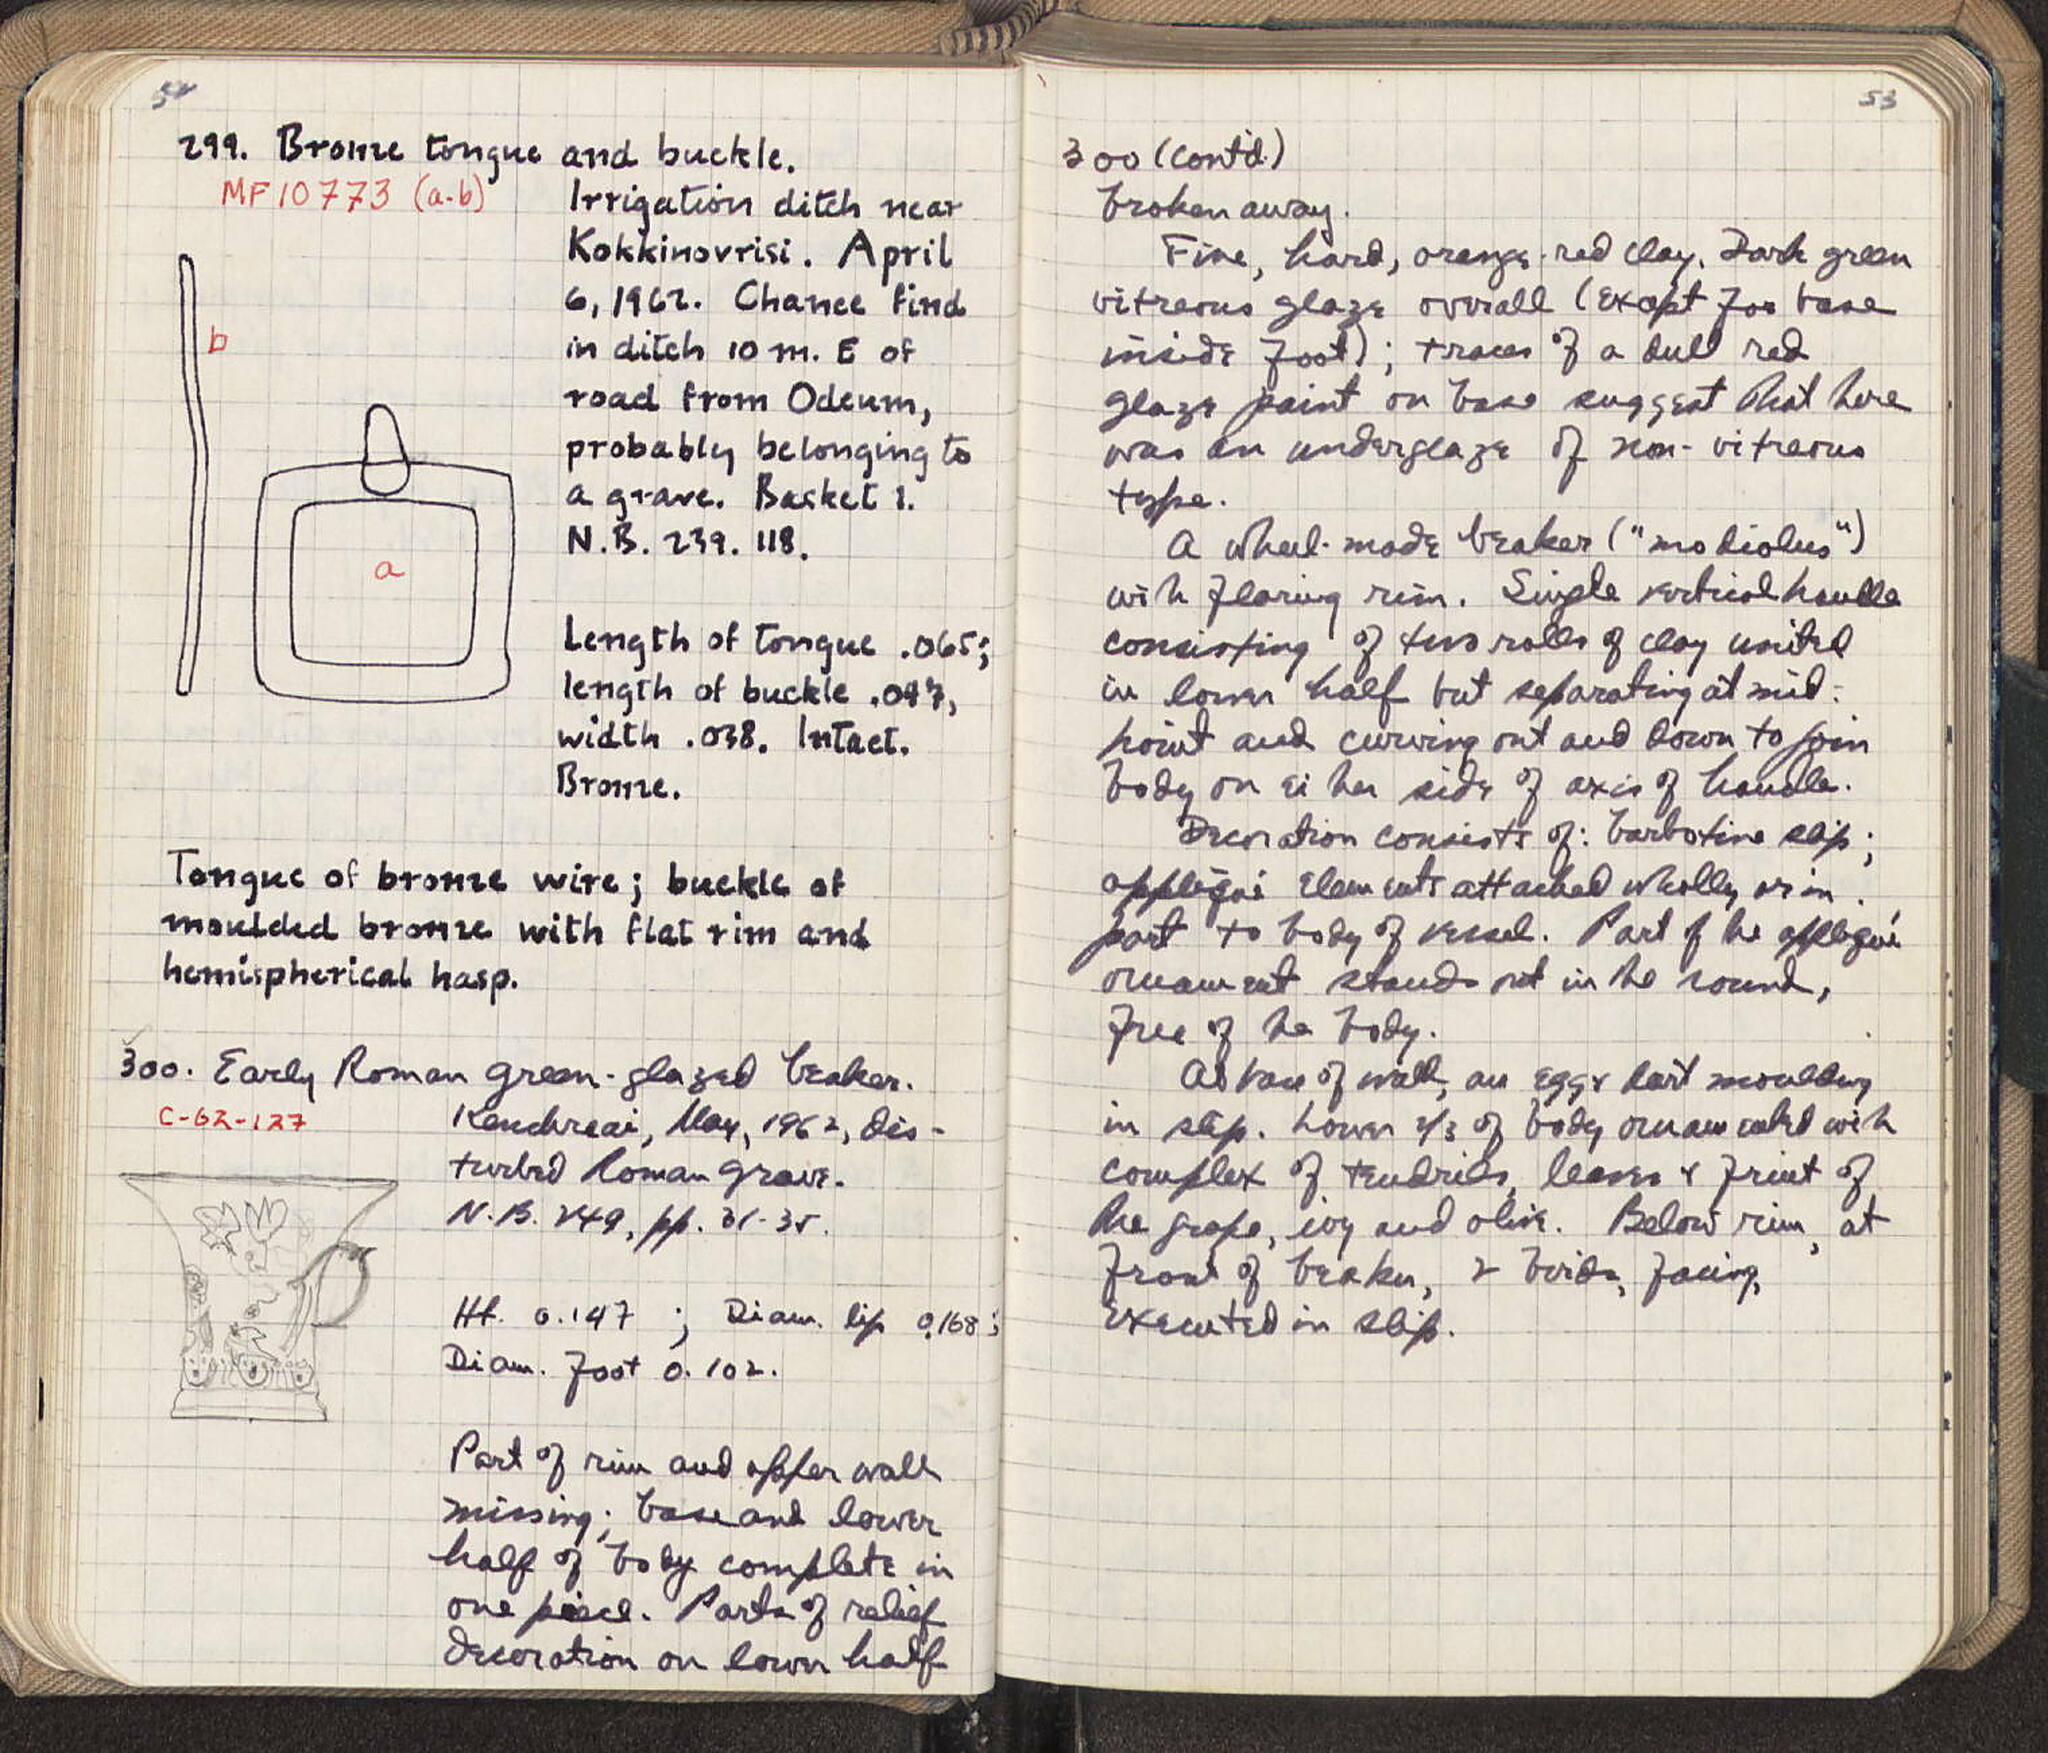 52
299. Bronze tongue and buckle.
MF10773 (a-b)
Irrigation ditch near
Kokkinovrisi. April
6, 1962. Chance find
in ditch 10 m. E of
road from Odeum,
probably belonging to
a grave. Basket 1.
N.B. 239. 118.
b
a
Length of tongue .065;
length of buckle .047,
width .038. Intact.
Bronze.
Tongue of bronze wire; buckle of
moulded bronze with flat rim and
hemispherical hasp.
300. Early Roman green-glazed beaker.
C-62-127
Kenchreai, May, 1962, dis-
turbed Roman grave.
N.B. 249, pp. 31-35.
Ht. 0.147 ; Diam. lip 0.168;
Diam. foot 0.102.
Part of rim and upper wall
missing; base and lower
half of body complete in
one piece. Parts of relief
decoration on lower half
53
300 (cont'd.)
broken away.
Fine, hard, orange-red clay. Dark green
vitreous glaze overall (except for base
inside foot); traces of a dull red
glaze paint on base suggest that here
was an underglaze of non-vitreous
type.
A wheel-made beaker ("modiolus")
with flaring rim. Single vertical handle
consisting of two rolls of clay united
in lower half but separating at mid-
point and curving out and down to join
body on either side of axis of handle.
Decoration consists of: barbotine slip;
appliqué elements attached wholly or in
part to body of vessel. Part of the appliqué
ornament stands out in the round,
free of the body.
At base of wall, an egg & dart moulding
in slip. Lower 2/3 of body ornamented with
complex of tendrils, leaves & fruit of
the grape, ivy and olive. Below rim, at
front of beaker, 2 birds, facing,
executed in slip.